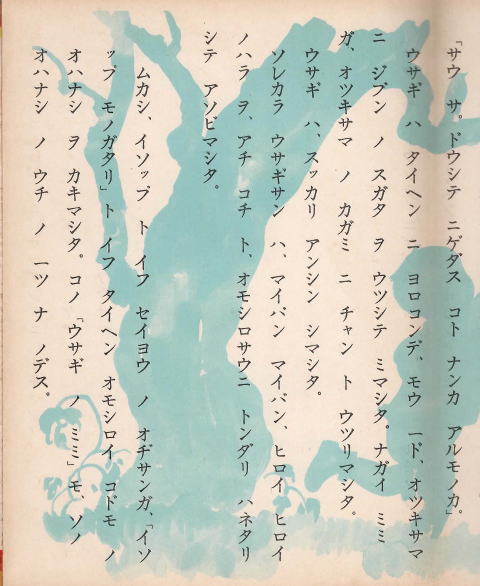 「サウ サ。ドウシテ ニゲダス コト ナンカ アルモノカ。」
ウサギ ハ タイヘン ニ ヨロコンデ、モウ 一ド、オツキサマ
ニ ジブン ノ スガタ ヲ ウツシテ ミマシタ。ナガイ ミミ
ガ、オツキサマ ノ カガミ ニ チャン ト ウツリマシタ。
ウサギ ハ、スッカリ アンシン シマシタ。
ソレカラ ウサギサン ハ、マイバン マイバン、ヒロイ ヒロイ
ノハラ ヲ、アチ コチ ト、オモシロサウニ トンダリ ハネタリ
シテ アソビマシタ。
ムカシ、イソップ ト イフ セイヨウ ノ オヂサンガ、「イソ
ップ モノガタリ」ト イフ タイヘン オモシロイ コドモ ノ
オハナシ ヲ カキマシタ。コノ 「ウサギ ノ ミミ」モ、ソノ
オハナシ ノ ウチ ノ 一ツ ナ ノデス。